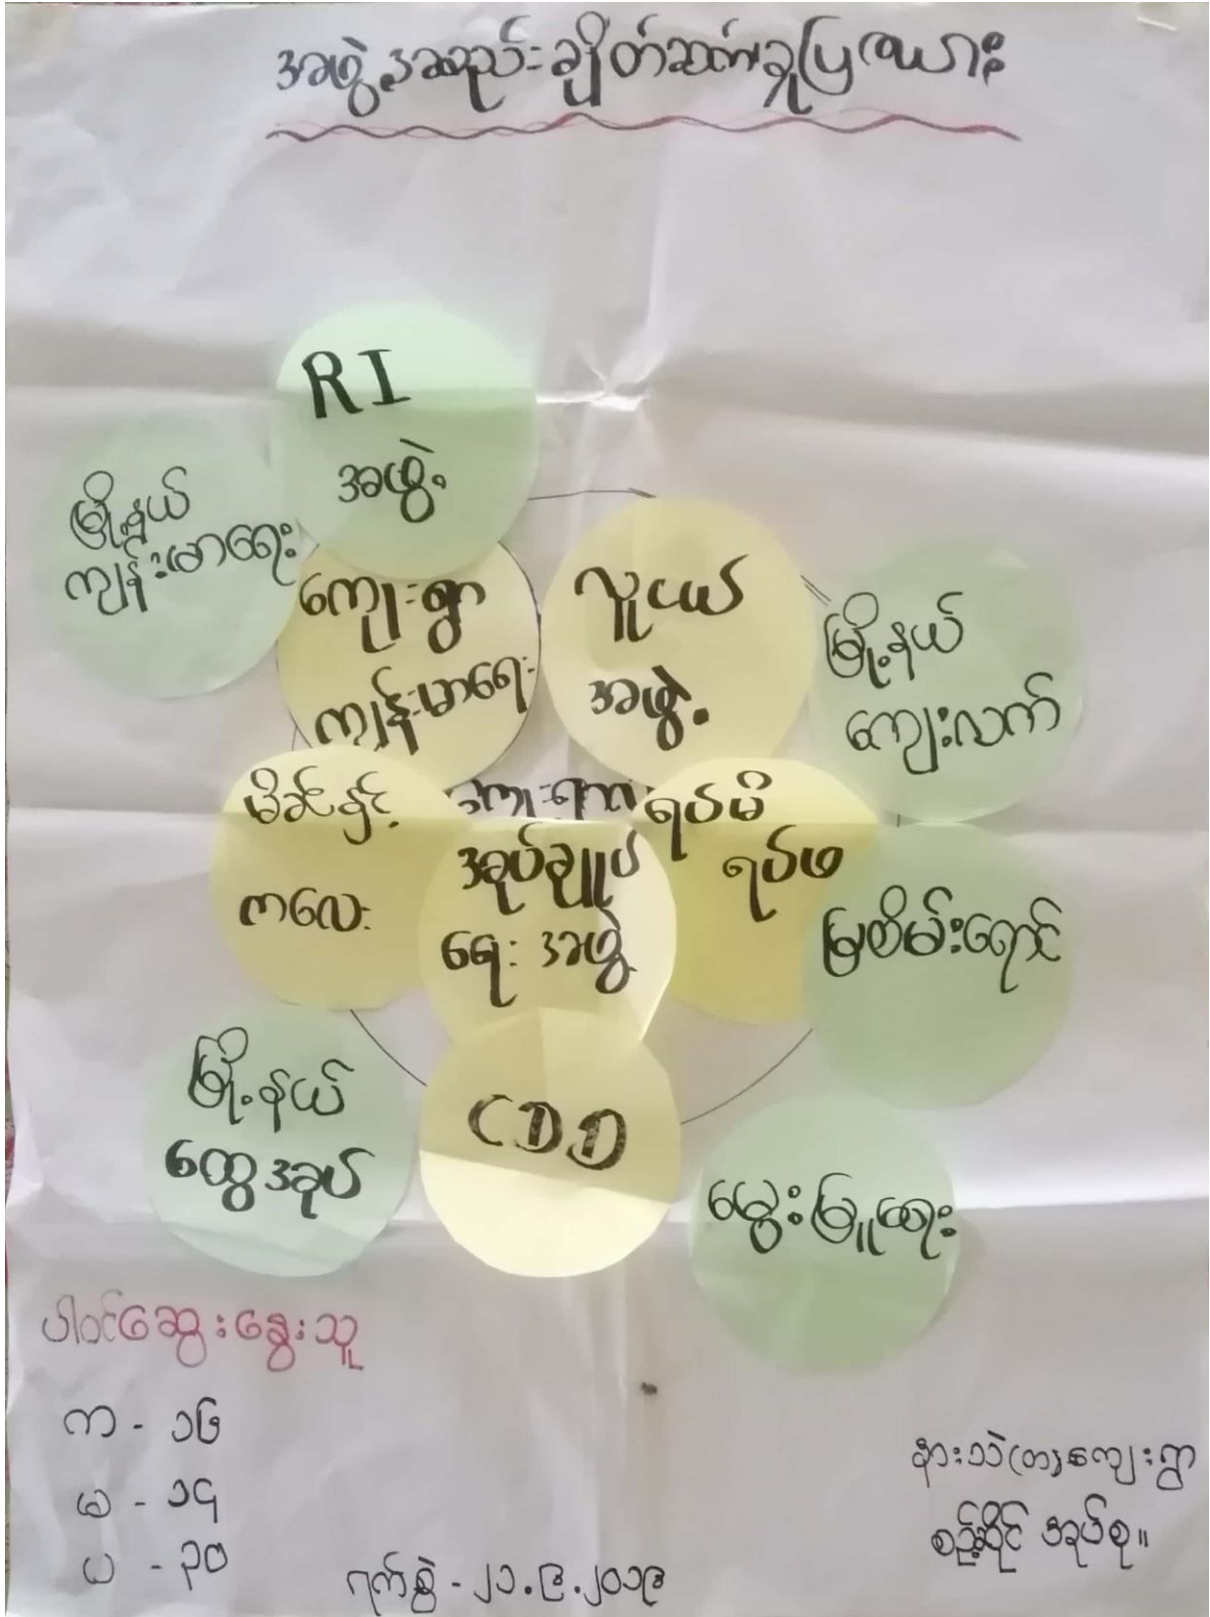 အဖွဲ့အစည်းချိတ်ဆက်မှုပြကားချပ်
RI
အဖွဲ့
မြို့နယ်
ကျန်းမာရေး
ကျေးရွာ
ကျန်းမာရေး
လူငယ်
အဖွဲ့
မြို့နယ်
ကျေးလက်
မိခင်နှင့်
ကလေး
ကျေးရွာ
အုပ်ချုပ်
ရေး အဖွဲ့
ရပ်မိ
ရပ်ဖ
မြစိမ်းရောင်
မြို့နယ်
ထွေအုပ်
CDD
မွေးမြူရေး
ပါဝင်ဆွေးနွေးသူ
က - ၁၆
မ - ၁၄
ပ - ၃၀
ရက်စွဲ - ၂၁.၉.၂၀၁၉
ကျေးရွာ
အုပ်စု။